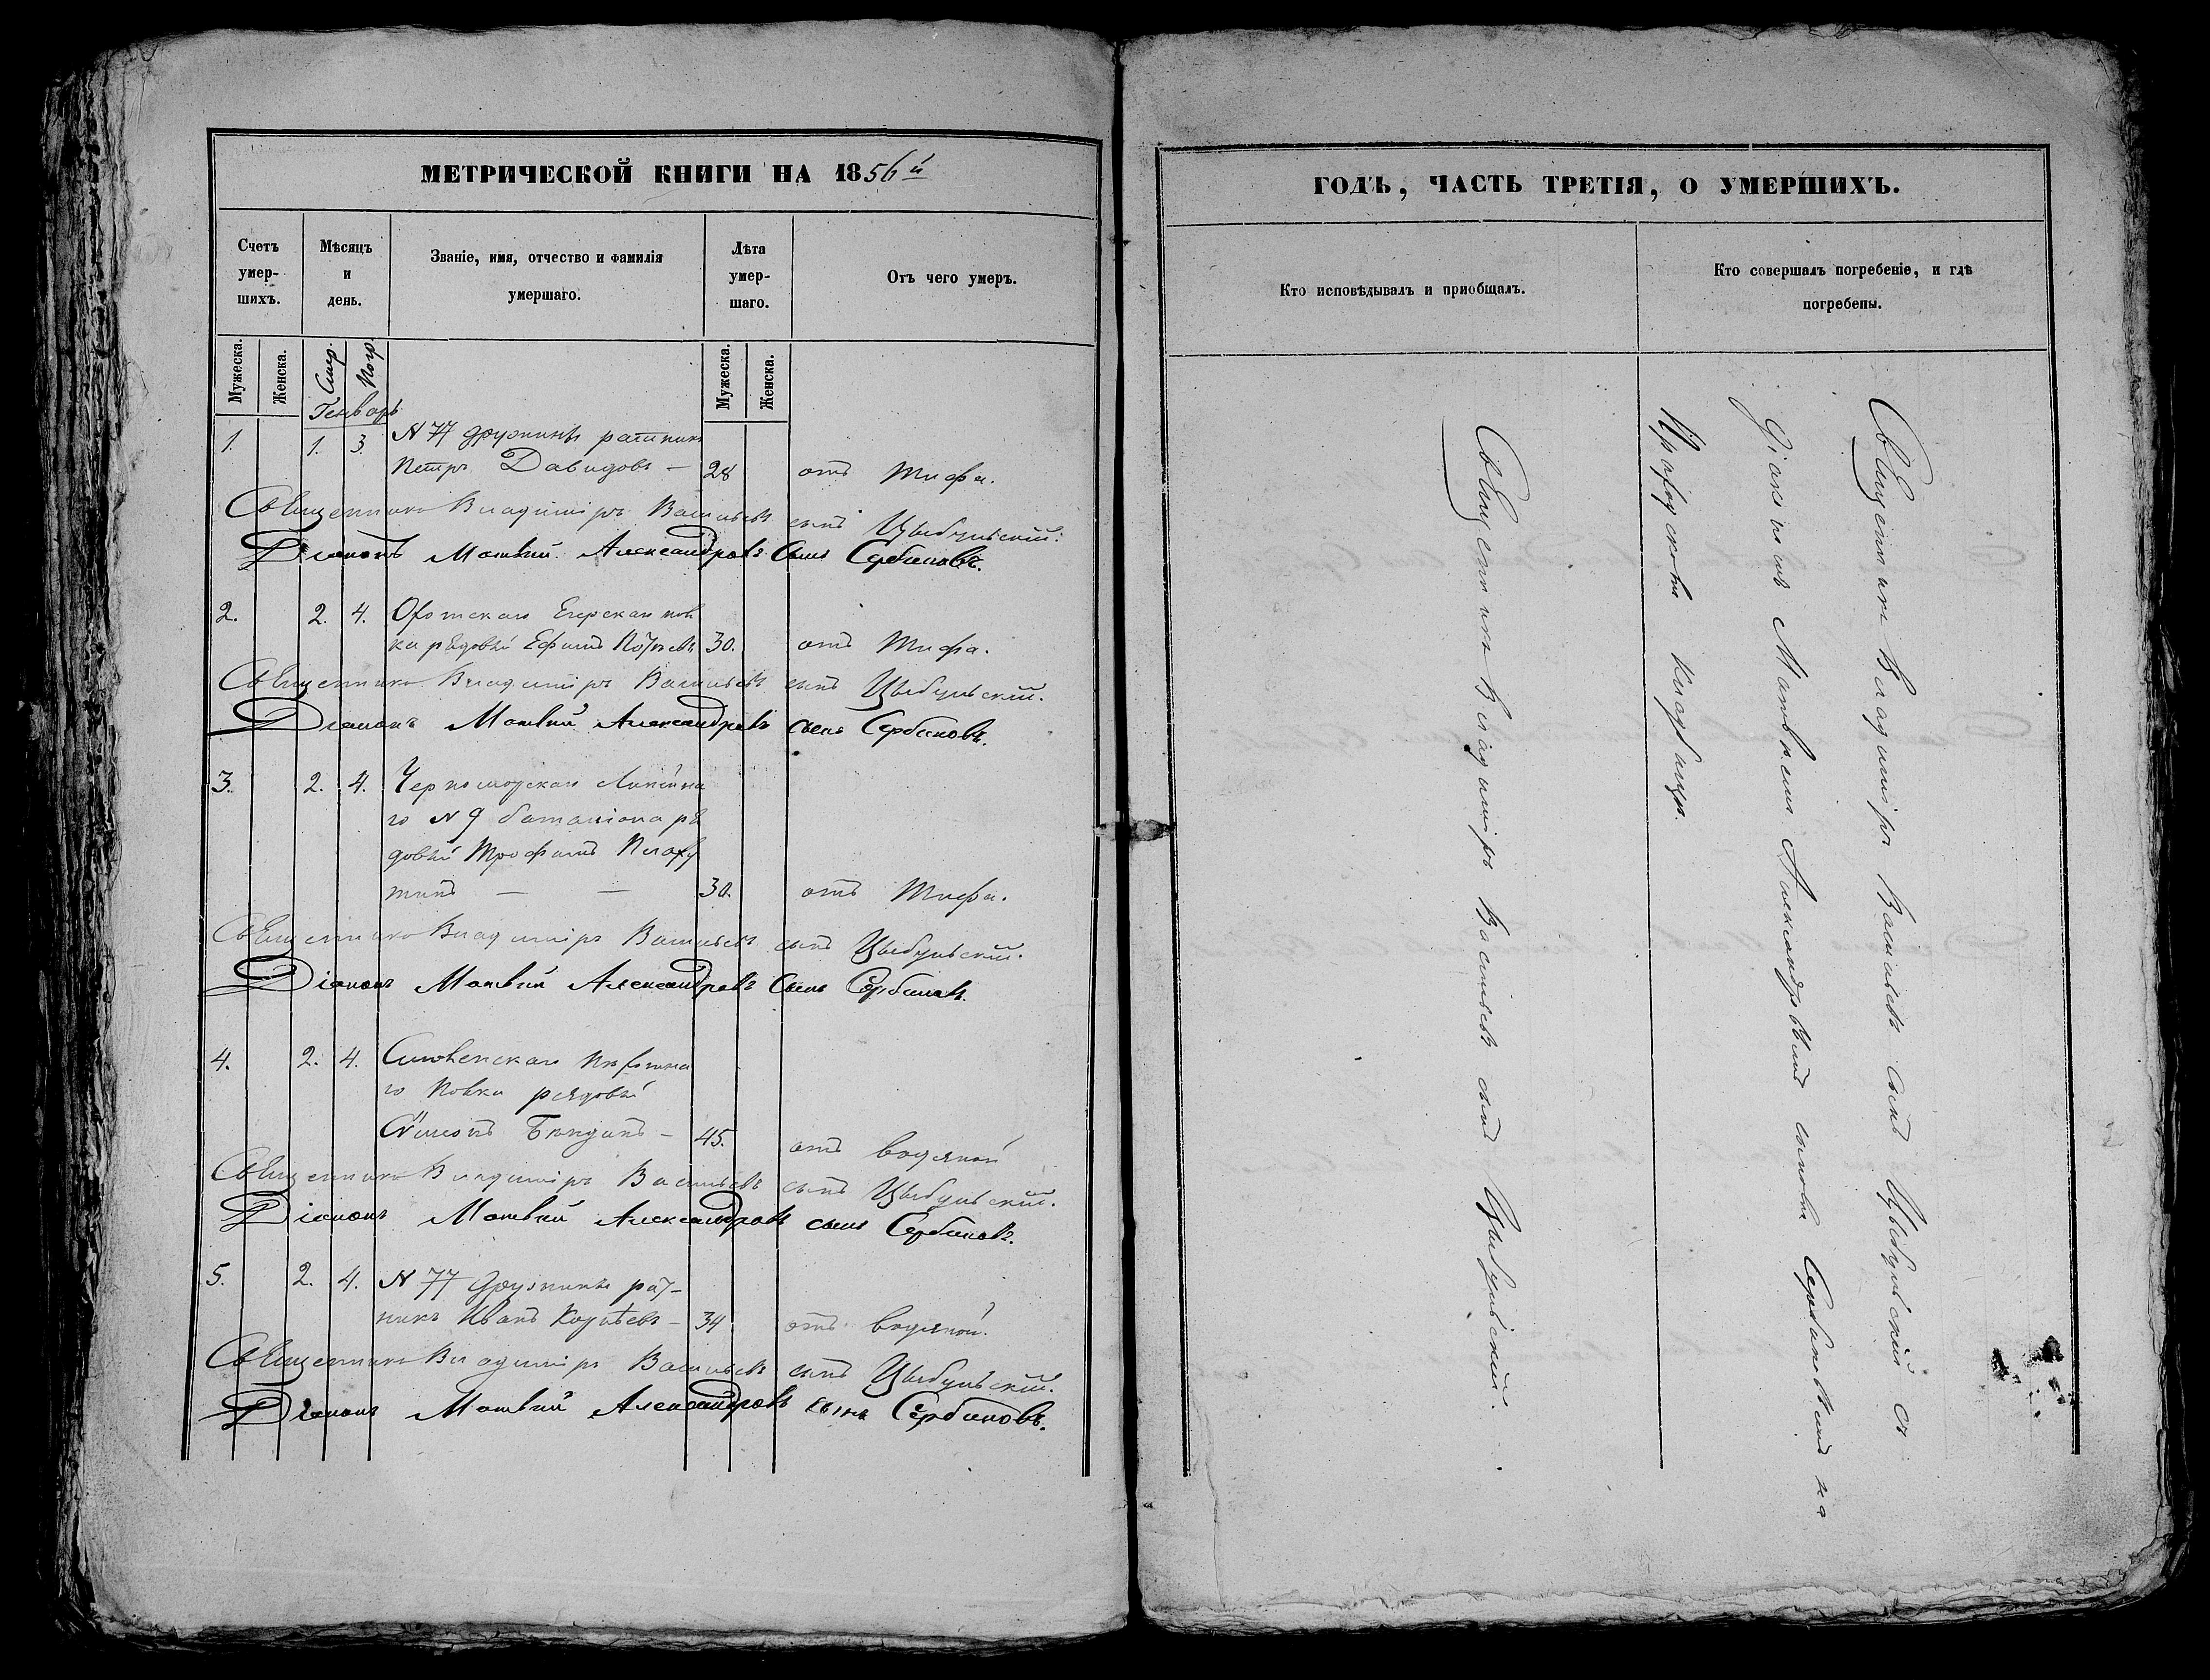 МЕТРИЧЕСКОЙ КНИГИ НА 1856й
Счетъ умер-шихъ.
Мѣсяцъ и день.
Званіе, имя, отчество и фамилія умершаго.
Лѣта умер-шаго.
Отъ чего умеръ.
Мужеска. Женска. Смер. Погр. Мужеска. Женска.
Генварь
1. 1. 3. N 77 дружины ратникъ
Петръ Давидовъ — 28 отъ тифа.
Священникъ Владиміръ Васильевъ сынъ Цыбульскій.
Діаконъ Матвѣй Александровъ Сынъ Сербиновъ.
2. 2. 4. Охотскаго Егерскаго пол
ка рядовый Ефимъ 30. отъ тифа.
Священникъ Владиміръ Васильевъ сынъ Цыбульскій.
Діаконъ Матвѣй Александровъ сынъ Сербиновъ.
3. 2. 4. Черноморскаго Линейна
го N 9 баталіона ря
довый Трофимъ Плаху
тинъ — — 30. отъ тифа.
Священникъ Владиміръ Васильевъ сынъ Цыбульскій.
Діаконъ Матвѣй Александровъ Сынъ Сербиновъ.
4. 2. 4. Смоленскаго Пѣхотна
го Полка рядовый
Симонъ — 45. отъ водяной
Священникъ Владиміръ Васильевъ сынъ Цыбульскій.
Діаконъ Матвѣй Александровъ сынъ Сербиновъ.
5. 2. 4. N 77 Дружины рат-
никъ Иванъ — 34 отъ водяной.
Священникъ Владиміръ Васильевъ сынъ Цыбульскій.
Діаконъ Матвѣй Александровъ сынъ Сербиновъ.
ГОДЪ, ЧАСТЬ ТРЕТІЯ, О УМЕРШИХЪ.
Кто исповѣдывалъ и пріобщалъ.
Кто совершалъ погребеніе, и гдѣ
погребены.
Священникъ Владиміръ Васильевъ сынъ Цыбульскій.
Священникъ Владиміръ Васильевъ сынъ Цыбульскій съ
Діакономъ Матвѣемъ Александровымъ сыномъ Сербиновымъ на
Городскомъ кладбищѣ.